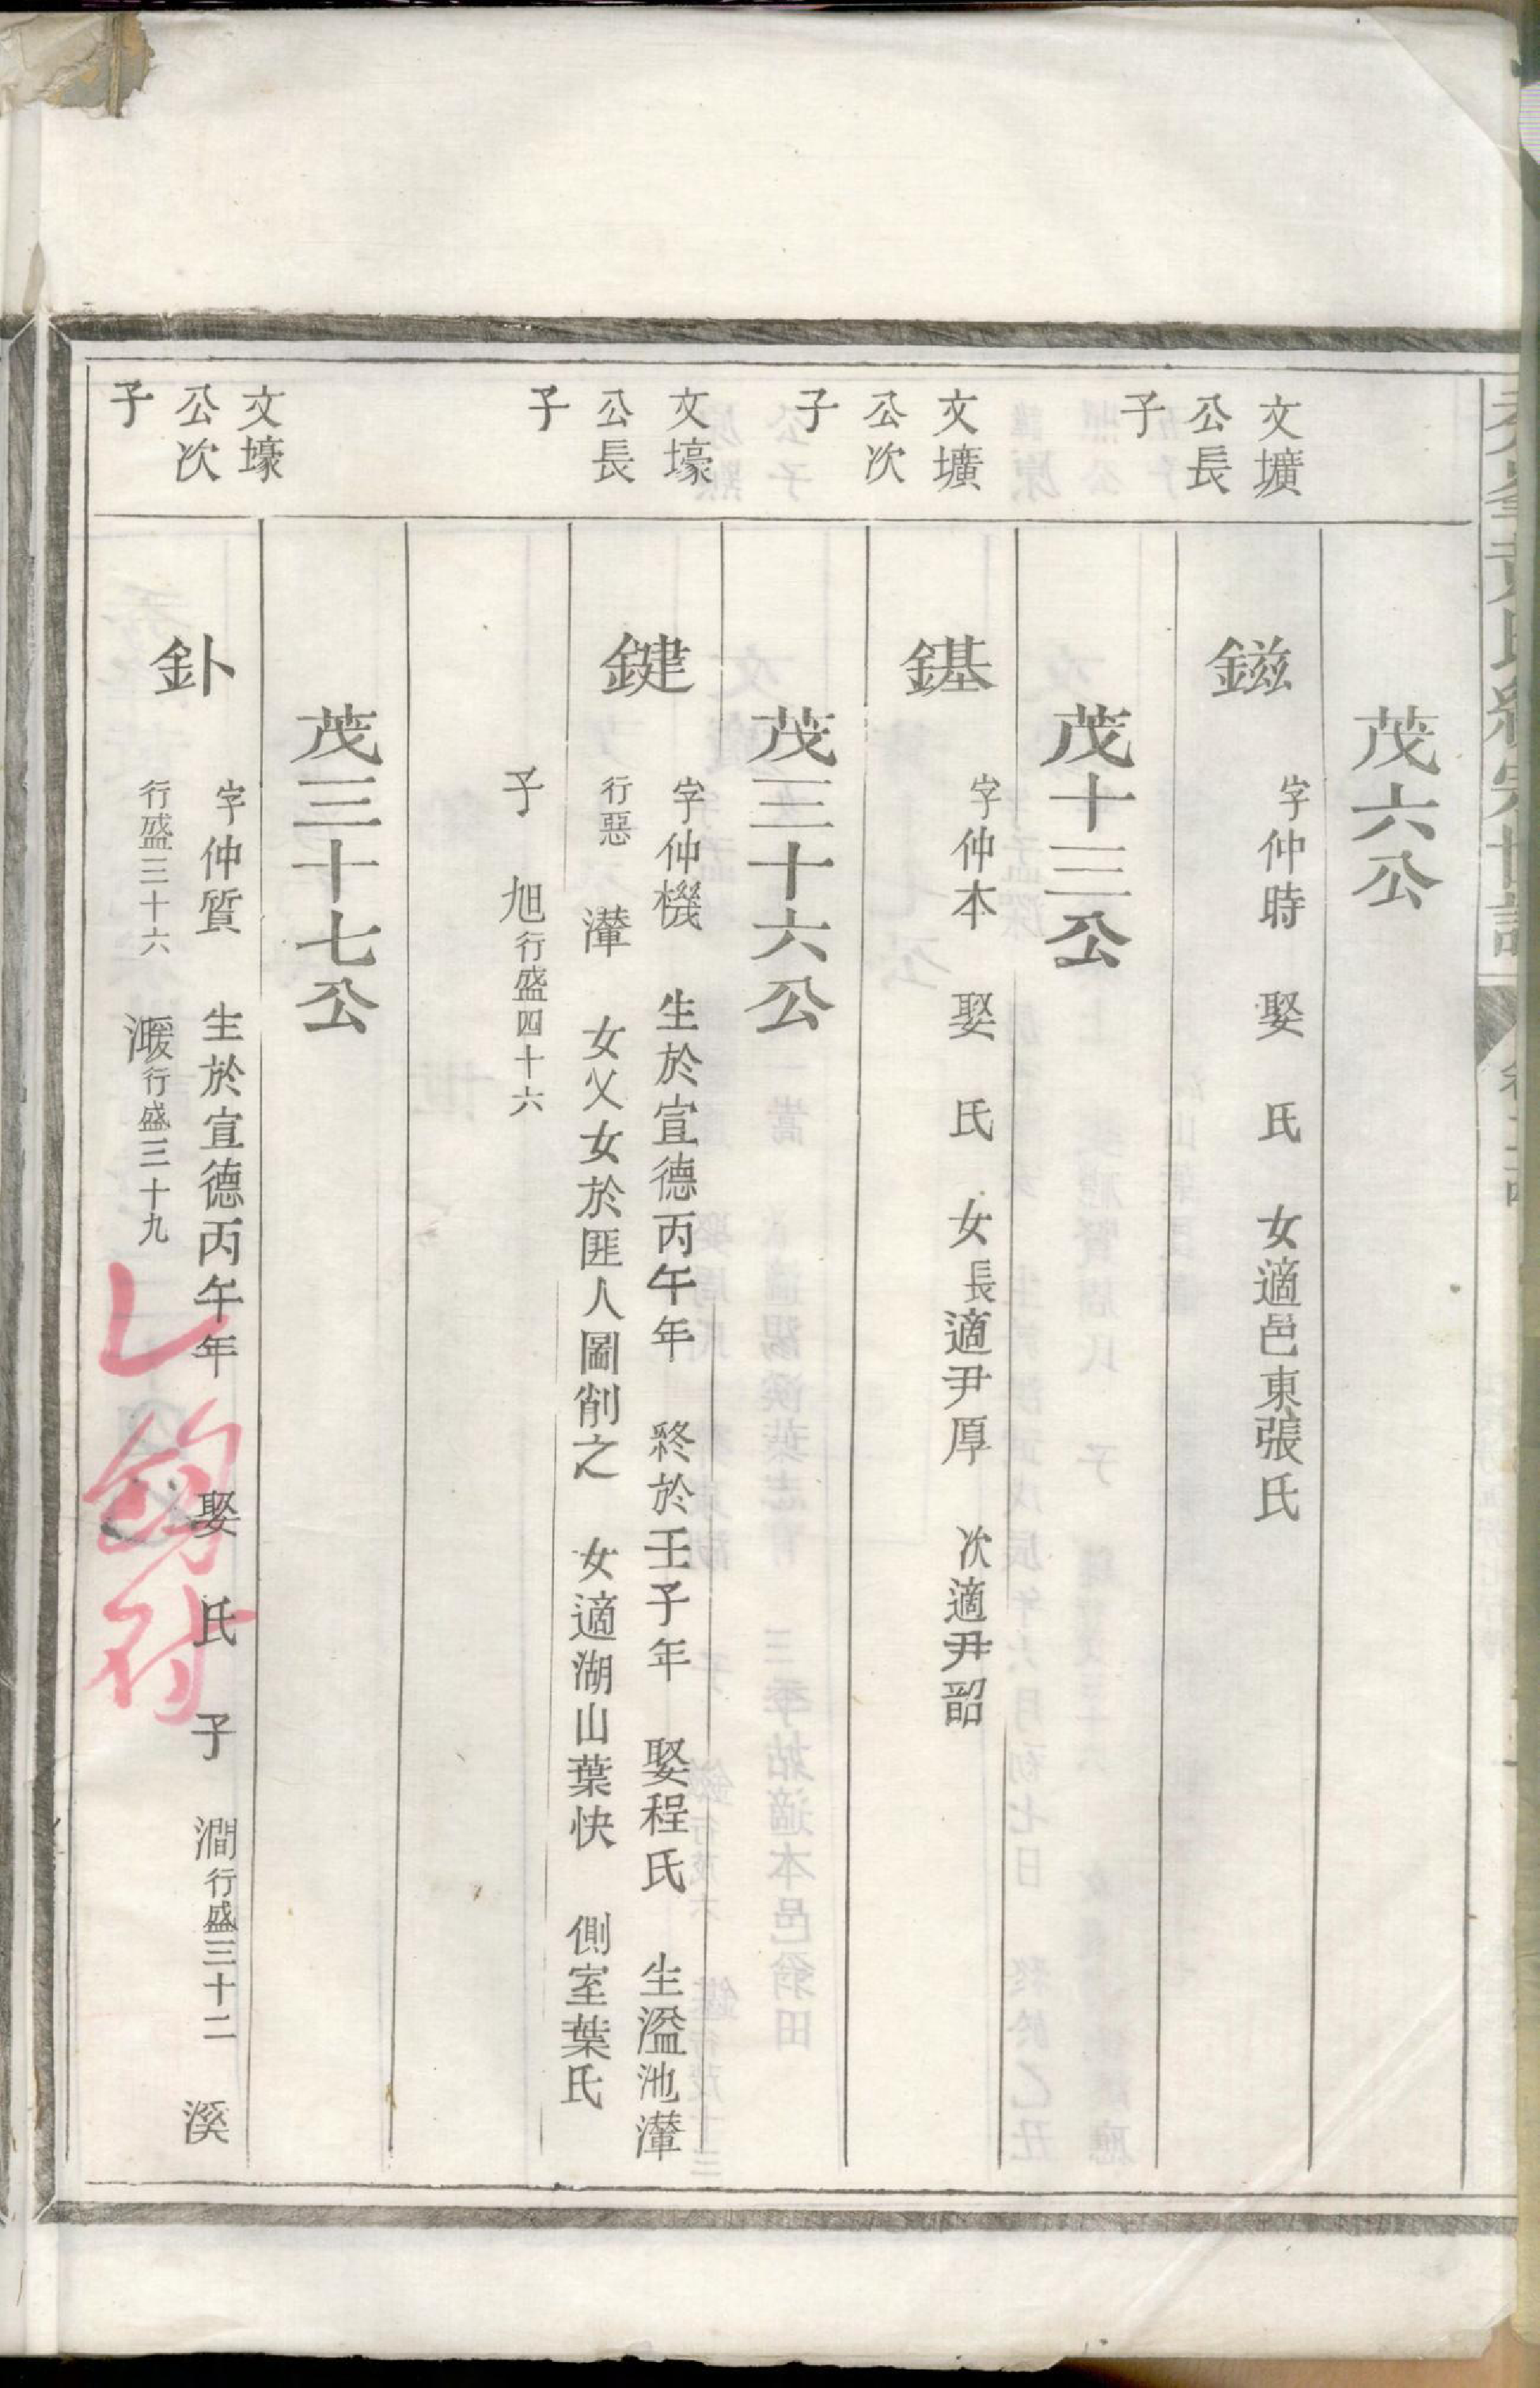 茂六公
文壙
公長
子
鎡
字仲時 娶 氏 女適邑東張氏
茂十三公
文壙
公次
子
鎡
字仲本 娶 氏 女長適尹厚 次適尹韶
茂三十六公
文壕
公長
子
鍵
字仲機 生於宣德丙午年 終於壬子年 娶程氏 生溋池灌
行惡 灌 女父女於匪人圖削之 女適湖山葉快 側室葉氏
子 旭行盛四十六
茂三十七公
文壕
公次
子
釙
字仲質 生於宣德丙午年 娶 氏 子 澗行盛三十二 溪
行盛三十六 湲行盛三十九